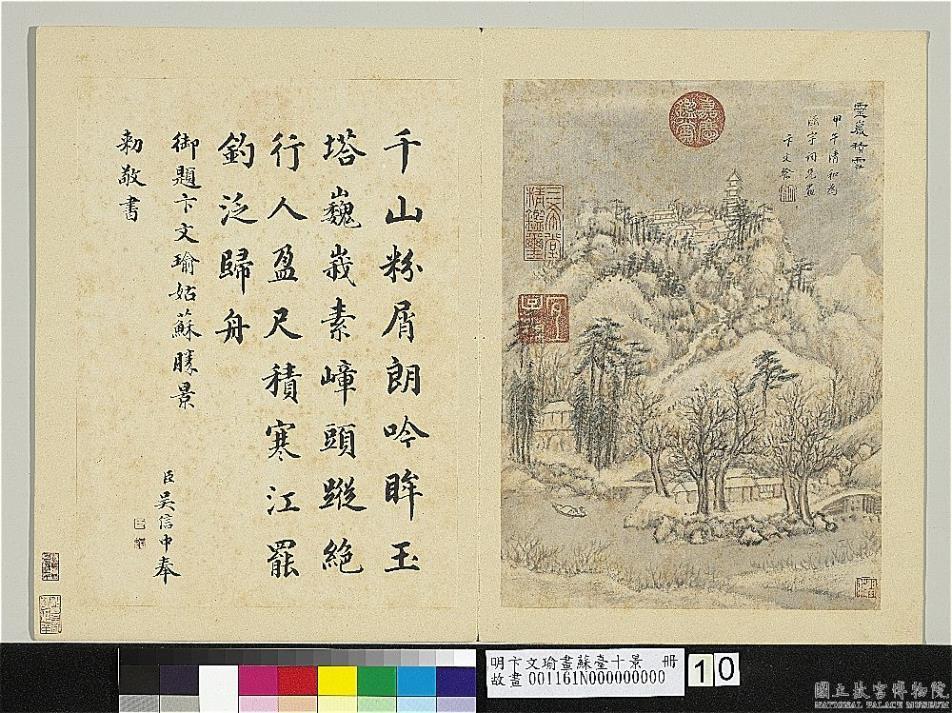 靈巖積雪
甲午清和為
詞兄畫
卞文瑜
千山粉屑朗吟眸玉
塔巍峩素嶂頭蹤絕
行人盈尺積寒江罷
釣泛歸舟
御題卞文瑜姑蘇勝景
臣吳信中奉
勅敬書
明卞文瑜畫蘇臺十景 冊
故畫001161N000000000
10
國立故宮博物院
NATIONAL PALACE MUSEUM